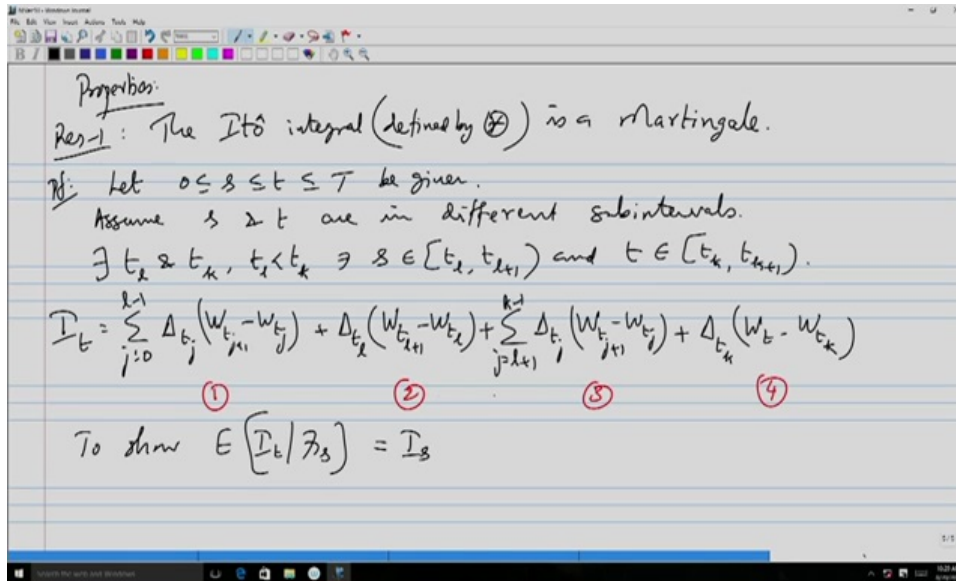 File Edit View Insert Actions Tools Help
B I
Properties:
Res-1: The Itô integral (defined by ⊛) is a Martingale.
Pf: Let 0 ≤ s ≤ t ≤ T be given.
Assume s & t are in different subintervals.
∃ t_l & t_k, t_l < t_k ∋ s ∈ [t_l, t_{l+1}) and t ∈ [t_k, t_{k+1}).
I_t = ∑_{j=0}^{l-1} Δ_{t_j} (W_{t_{j+1}} - W_{t_j}) + Δ_{t_l} (W_{t_{l+1}} - W_{t_l}) + ∑_{j=l+1}^{k-1} Δ_{t_j} (W_{t_{j+1}} - W_{t_j}) + Δ_{t_k} (W_t - W_{t_k})
① ② ③ ④
To show E[I_t | ℱ_s] = I_s
5/5
Search the web and Windows